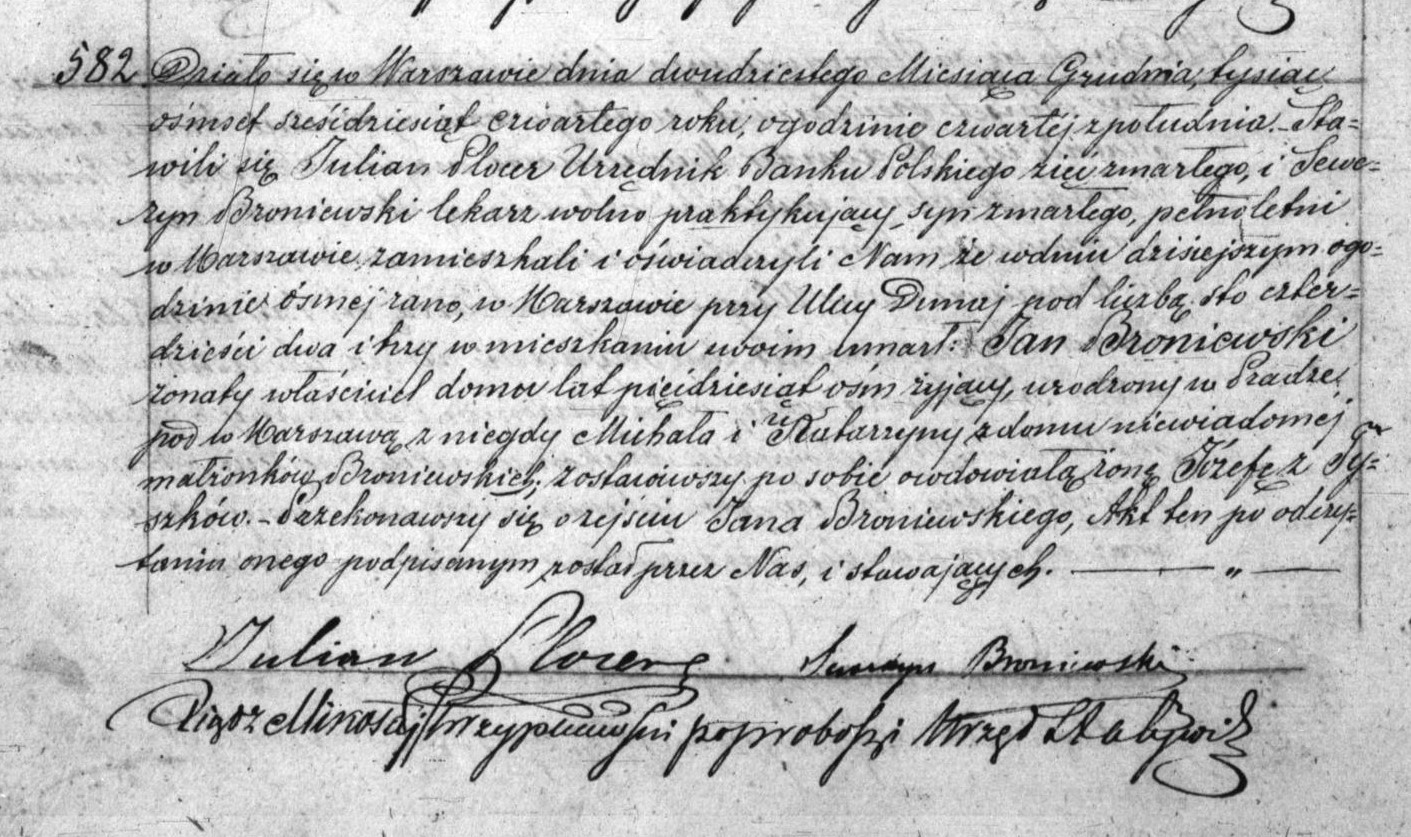 582 Działo się w Warszawie dnia dwudziestego Miesiąca Grudnia, tysiąc
ośmset sześćdziesiąt czwartego roku, o godzinie czwartej z południa.- Sta=
wili się Julian Plocer Urzędnik Banku Polskiego zięć zmarłego, i Sewe=
ryn Broniewski lekarz wolno praktykujący, syn zmarłego, pełnoletni
w Warszawie zamieszkali i oświadczyli Nam że w dniu dzisiejszym o go=
dzinie ósmej rano, w Warszawie przy Ulicy Dunaj pod liczbą sto czter=
dzieści dwa i trzy w mieszkaniu swoim umarł: Jan Broniewski
żonaty właściciel domu lat pięćdziesiąt ośm żyjący, urodzony w Pradze
pod Warszawą z niegdy Michała i Katarzyny z domu niewiadomej
małżonków Broniewskich; zostawiwszy po sobie owdowiałą żonę Józefę z Ty=
szków.- Przekonawszy się o zejściu Jana Broniewskiego, Akt ten po odczy=
taniu onego podpisanym został przez Nas, i stawających. — „ —
Julian Plocer Seweryn Broniewski
Xiądz